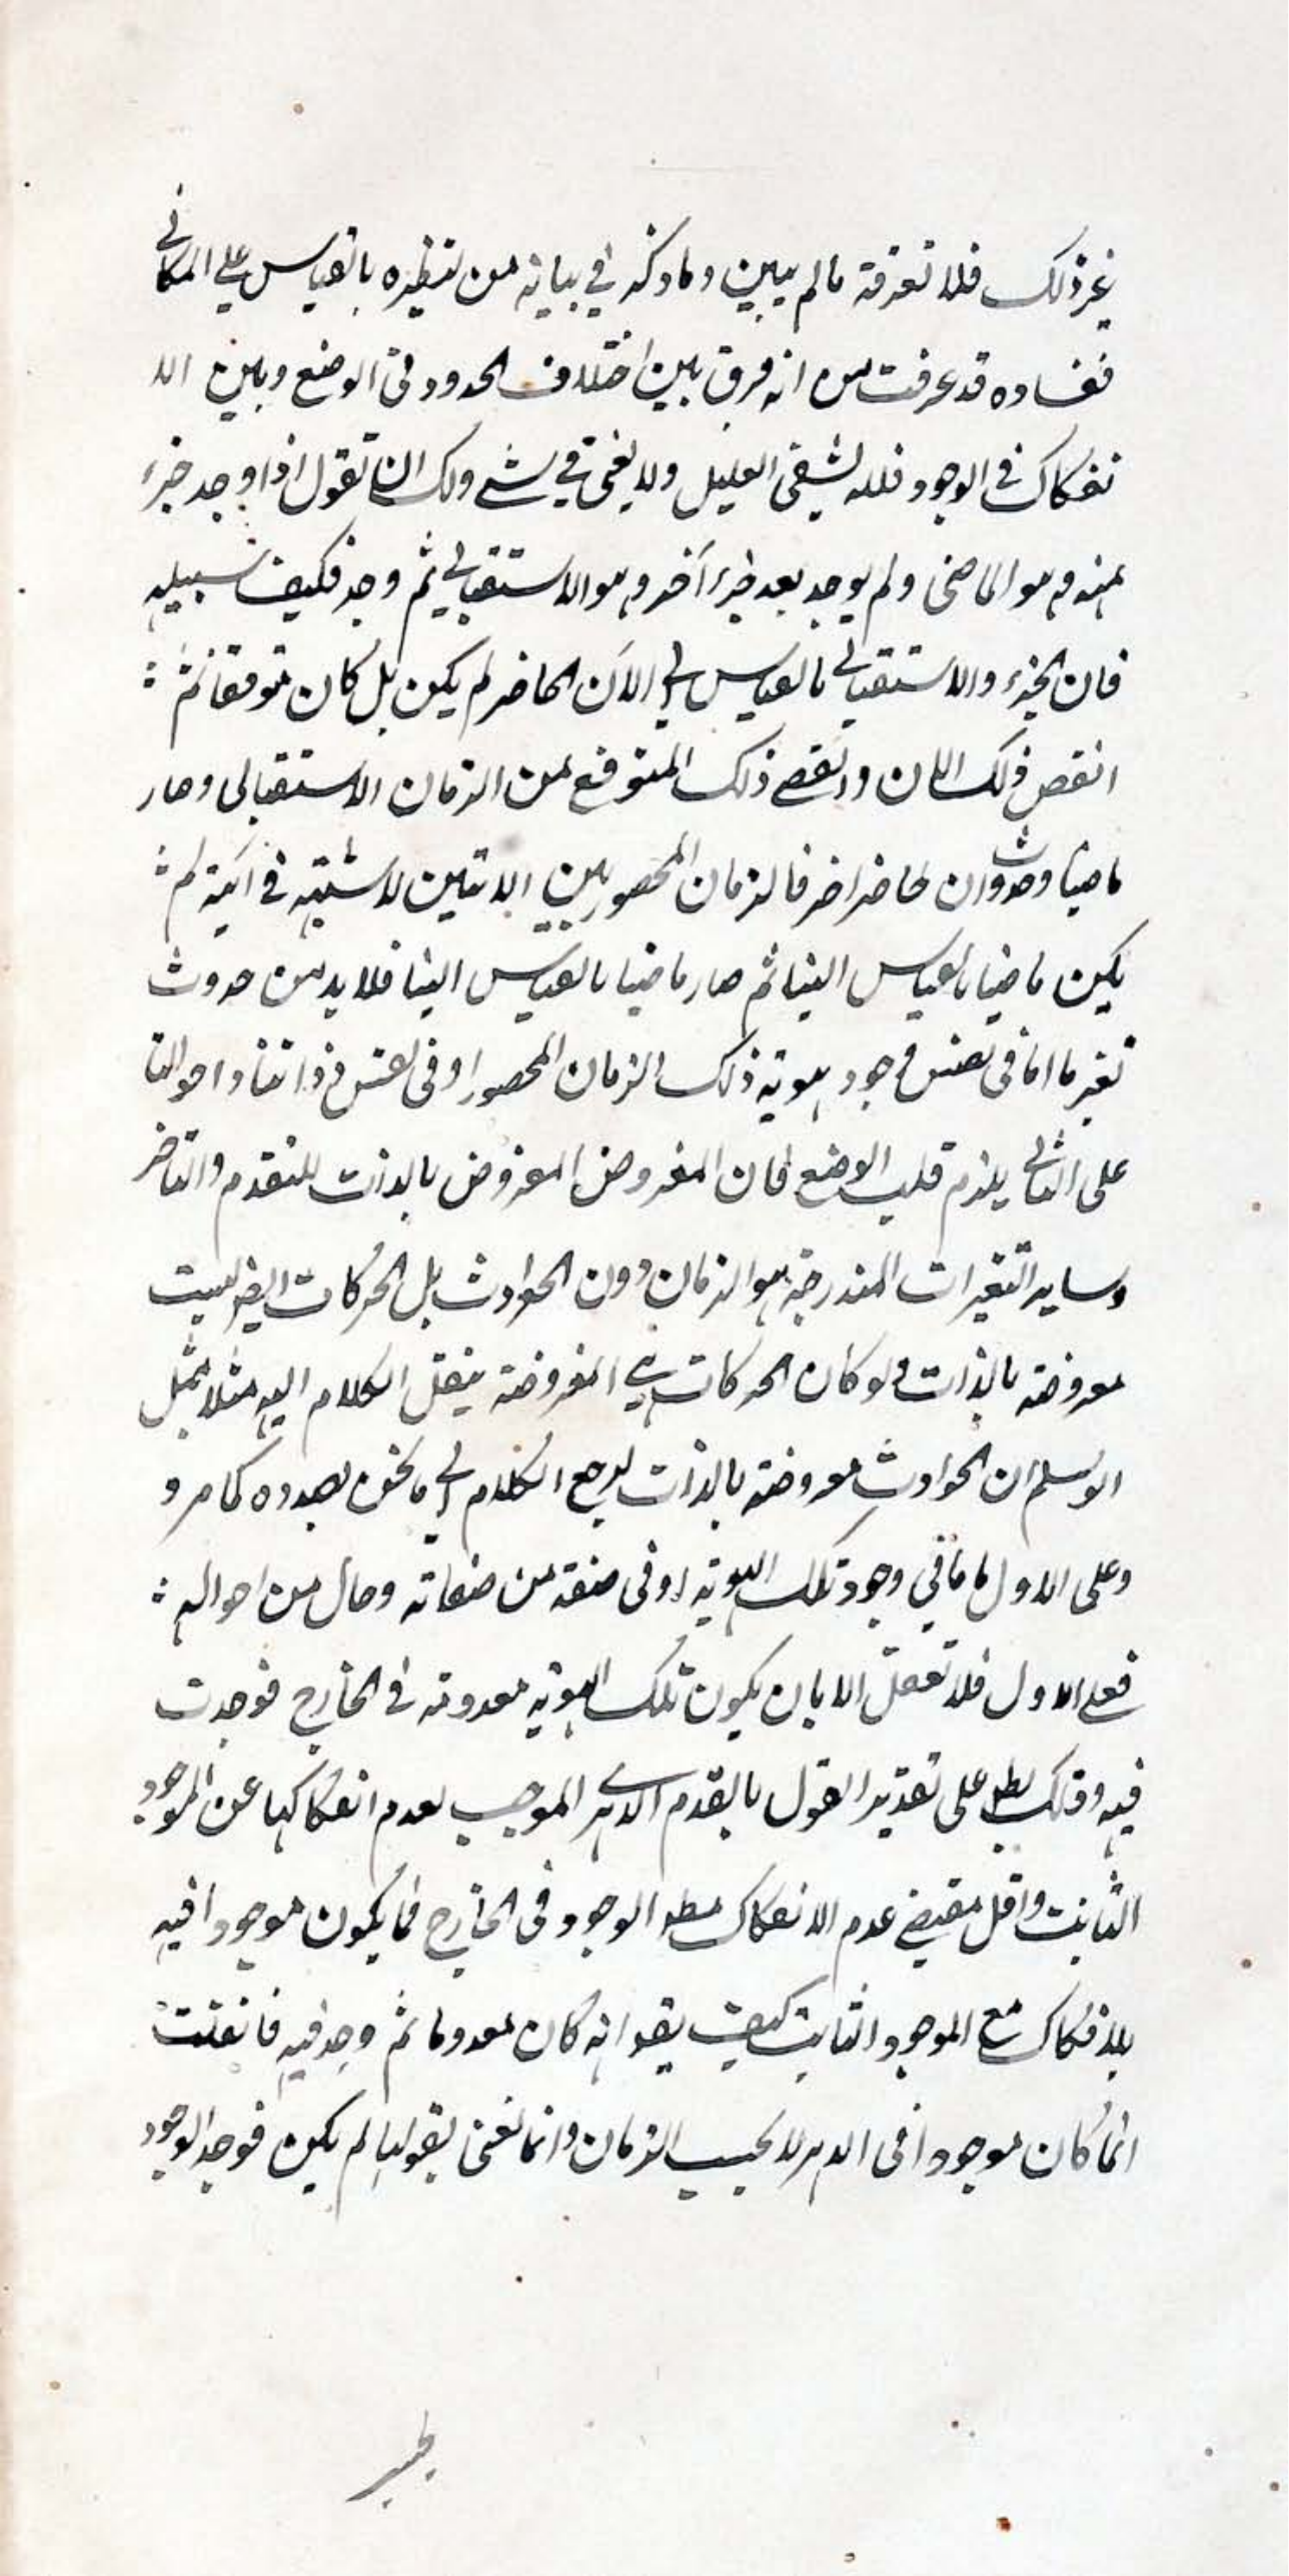 غير ذلك فلا تفرقة ما لم يبين وما ذكر في بيانه من تنظيره بالقياس على المكاني
ففساده قد عرفت من انه فرق بين اختلاف الحدود في الوضع وبين الا
نفكاك في الوجود فلا يشفى العليل ولا يغنى في شي ولك ان تقول اذا وجد جزء
منه وهو الماضى ولم يوجد بعد جزء آخر وهو الاستقبالي ثم وجد فكيف سبيله
فان الجزء والاستقبالي بالقياس الى الآن الحاضر لم يكن بل كان متوقعا ثم
انقضى ذلك الان وانقضى ذلك المتوقع من الزمان الاستقبالى وصار
ماضيا وحدوث ان حاضر اخر فالزمان المحصور بين الانين لا شبهة في انية لم
يكن ماضيا بالقياس الينا ثم صار ماضيا بالقياس الينا فلا بد من حدوث
تغير ما اما في نفس وجود هوية ذلك الزمان المحصور او في نفس ذواتنا واحوالنا
على الثاني يلزم قلب الوضع فان المفروض المعروض بالذات للتقدم والتاخر
وساير التغيرات المندرجة هو الزمان دون الحوادث بل الحركات ايضا ليست
معروضة بالذات ولو كان الحركات هي المعروضة ينقل الكلام اليه مثلا بمثل
الوسلم ان الحوادث معروضة بالذات لرجع الكلام الى ما نحن بصدده كما مر و
وعلى الاول اما في وجود تلك الهوية او في صفة من صفاته وحال من احواله
فعلى الاول فلا تعقل الا بان يكون تلك الهوية معدومة في الخارج فوجدت
فيه وذلك بطل على تقدير القول بالقدم الدهرى الموجب لعدم انفكاكها عن الموجود
الثابت واقل مقتضى عدم الانفكاك مطلق الوجود في الخارج فما يكون موجودا فيه
بلا انفكاك مع الموجود الثابت كيف يقو انه كان معدوما ثم وجد فيه فان قلت
انما كان موجودا في الدهر لا بحسب الزمان وانما نعنى بقولنا لم يكن فوجد الوجود
بحسب